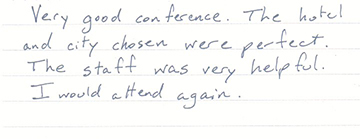 Very good conference. The hotel
and city chosen were perfect.
The staff was very helpful.
I would attend again.